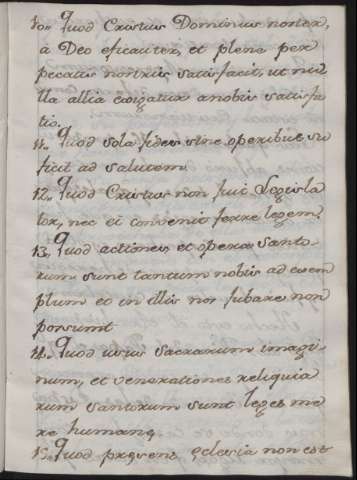 10,, Quod Cristus Dominus noster,
à Deo eficaciter, et plene per
pecatis nortris satisfacit, ut nu
lla allia exigatur anobis satisfa
tio.
11,, Quod sola fides sine operibus su
ficit ad salutem
12,, Quod Cristus non fuit Legisla
tor, nec ei convenit ferre legem.
13,, Quod actiones et opera Santo-
rum sunt tantum nobis ad exem
plum et in illis nos jubare non
porsunt
14,, Quod usus sacrarum imagi-
num, et venerationes reliquia
rum santorum sunt leges me
re humane,
15,, Quod presens eclesia non est